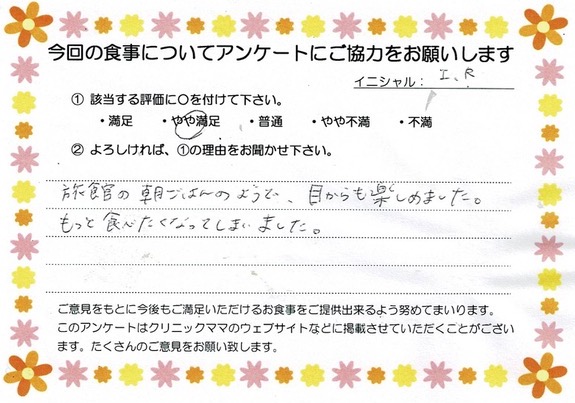 今回の食事についてアンケートにご協力をお願いします
イニシャル： I、R
① 該当する評価に〇を付けて下さい。
・満足 ・やや満足 ・普通 ・やや不満 ・不満
② よろしければ、①の理由をお聞かせ下さい。
旅館の朝ごはんのようで、目からも楽しめました。
もっと食べたくなってしまいました。
ご意見をもとに今後もご満足いただけるお食事をご提供出来るよう努めてまいります。
このアンケートはクリニックママのウェブサイトなどに掲載させていただくことがござい
ます。たくさんのご意見をお願い致します。